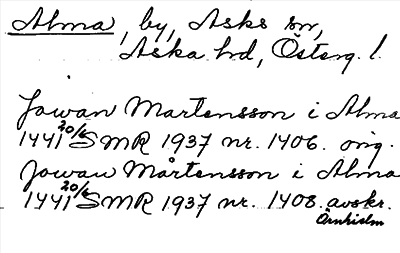 Alma, by, Asks sn,
Aska hd, Österg. l.
Jowan Martensson i Alma
1441 20/6 SMR 1937 nr. 1406. orig.
Jowan Mårtensson i Alma
1441 20/6 SMR 1937 nr. 1408. avskr.
Örnhielm